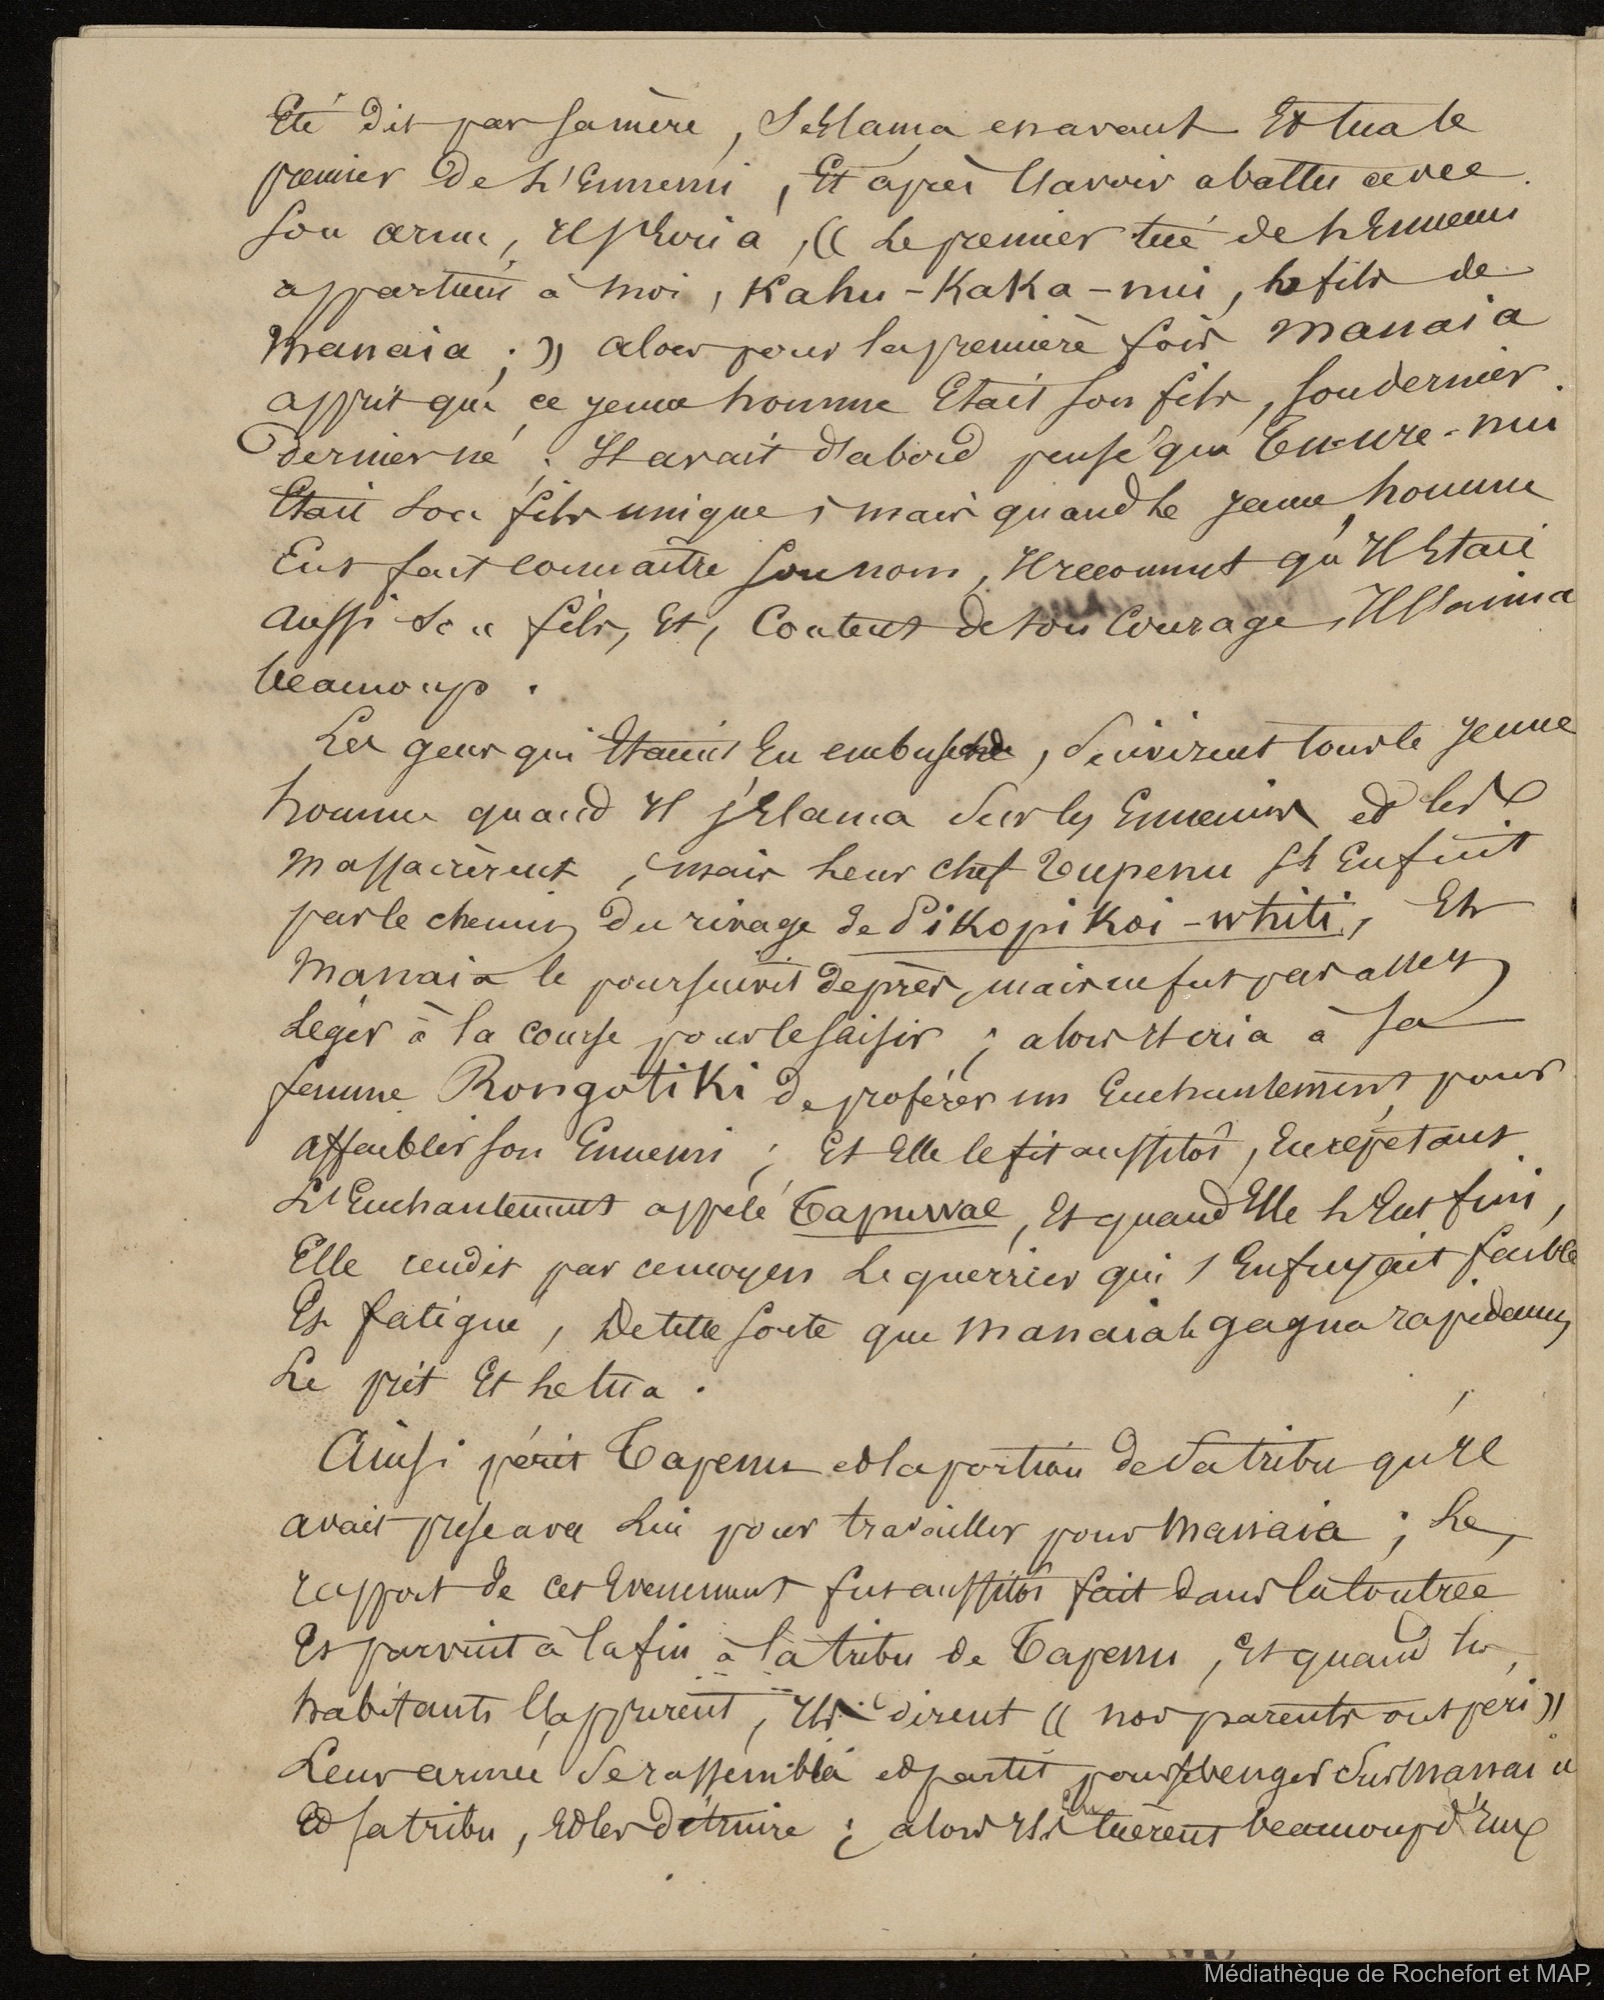 Eté dit par sa mère, S'Elança en avant Et tua le
premier de L'Ennemi, Et après l'avoir abattu avec
son arme, Il s'Ecria, (( Le premier tué de L'Ennemi
appartient à moi, Kahu-Kaka-nui, Le fils de
Manaia ; )) alors pour la première fois Manaia
apprit que ce jeune homme Etait son fils, son dernier
dernier né ; Il avait d'abord pensé que Tu-ure-nui
Etait son fils unique ; mais quand Le jeune homme
Eut fait connaître son nom, Il reconnut qu'Il Etait
aussi son fils, Et, Content de son Courage, Il l'aima
beaucoup .
Les gens qui Etaient En embuscade, Suivirent tous le jeune
homme quand Il s'Elança Sur les Ennemis et les
Massacrèrent ; mais Leur chef Tupenu S'Enfuit
par le chemin Du rivage de Pikopikoi-whiti, Et
Manaia le poursuivit de près, mais ne fut pas assez
Léger à la course pour le saisir ; alors Il cria à sa
femme Rongotiki de proférer un Enchantement pour
affaiblir son Ennemi ; Et Elle le fit aussitôt, En répétant
L'Enchantement appelé Tapuwae, Et quand Elle L'Eut fini,
Elle rendit par ce moyen Le guerrier qui s'Enfuyait faible
Et fatigué, De telle sorte que Manaia le gagna rapidement,
Le prit Et Le tua .
Ainsi périt Tapenu et la portion de Sa tribu qu'Il
avait prise avec Lui pour travailler pour Manaia ; Le
rapport de ces Evenements fut aussitôt fait dans la Contrée
Et parvint à la fin à la tribu de Tapenu, Et quand les
habitants l'apprirent, Ils dirent (( nos parents ont péri ))
Leur armée Se rassembla et partit pour se venger Sur Manaia
Et sa tribu, Et les détruire ; alors Ils tuèrent beaucoup d'Eux
Médiathèque de Rochefort et MAP